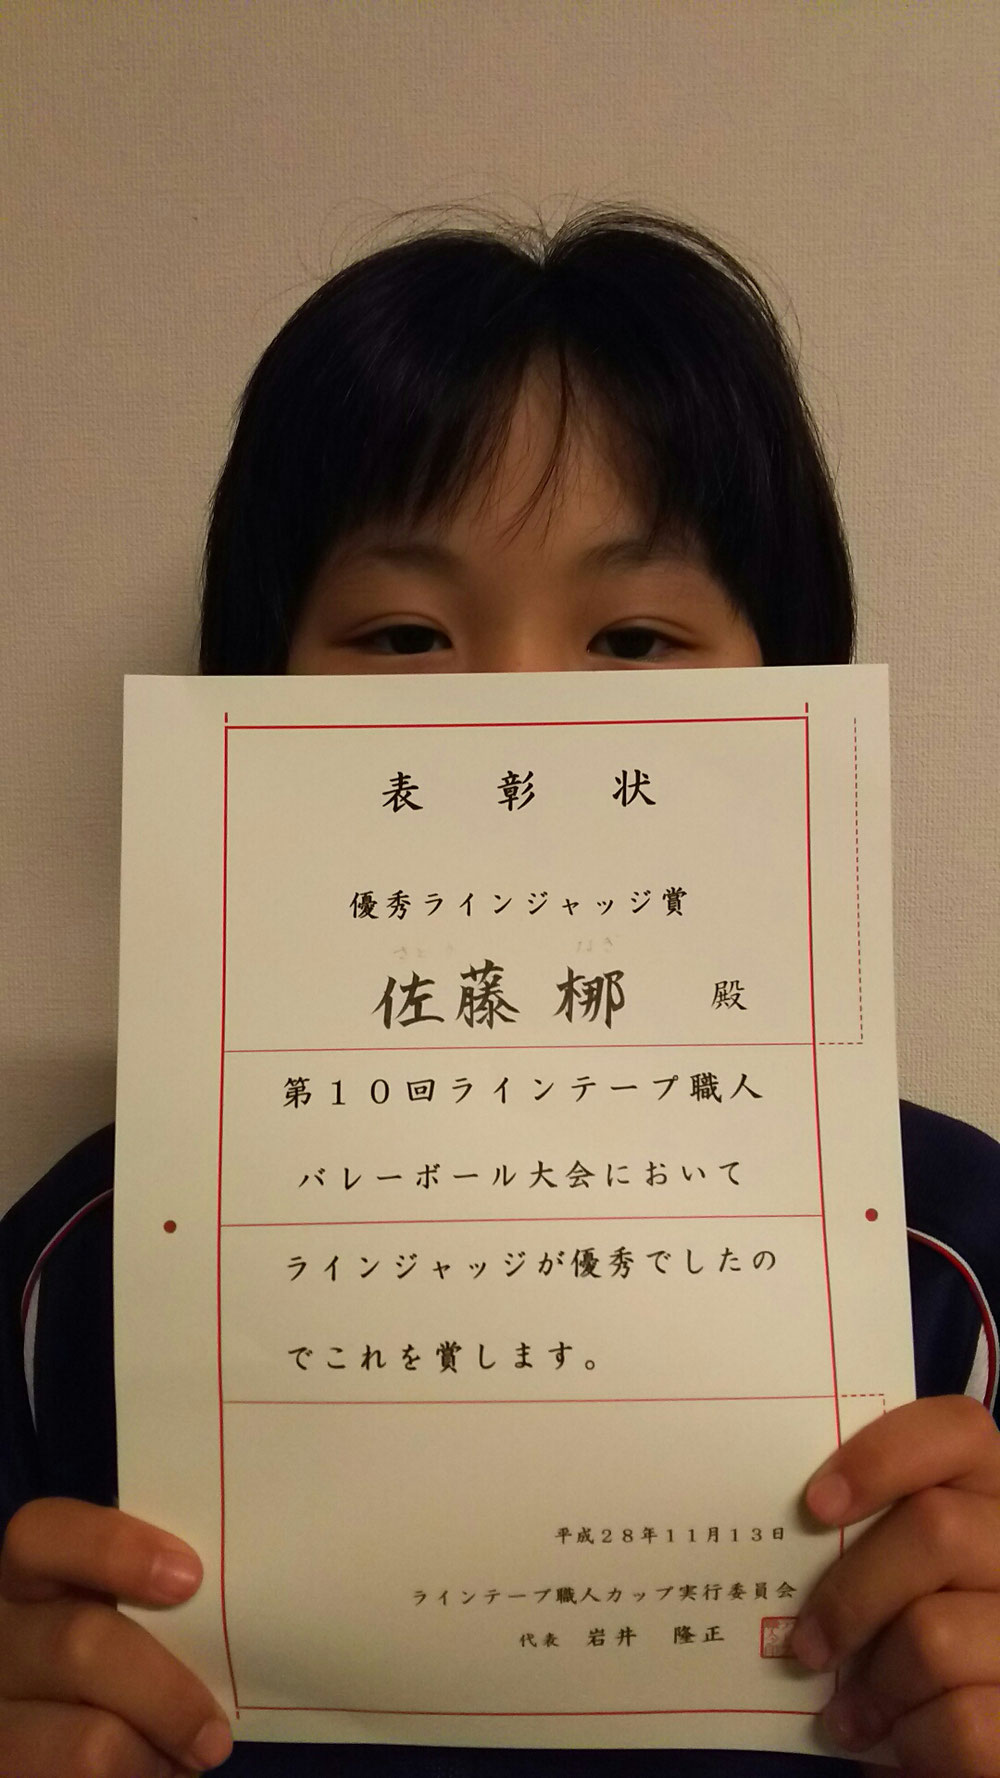 表彰状
優秀ラインジャッジ賞
佐藤 梛 殿
第１０回ラインテープ職人
バレーボール大会において
ラインジャッジが優秀でしたの
でこれを賞します。
平成２８年１１月１３日
ラインテープ職人カップ実行委員会
代表 岩井 隆正